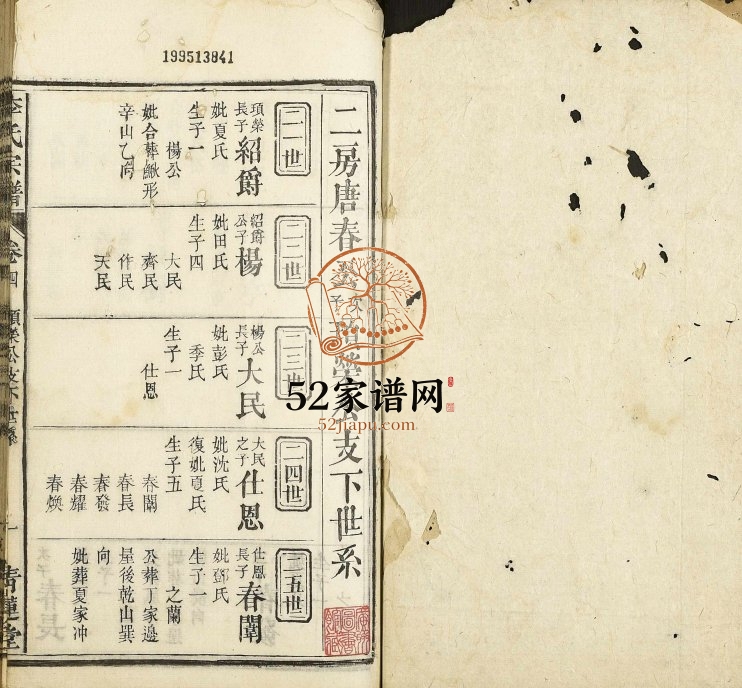 199513841
二房唐春公次子項榮公支下世系
二一世
項榮長子 紹爵
妣夏氏
生子一
楊公
妣合葬鍬形
辛山乙向
二二世
紹爵公子 楊
妣田氏
生子四
大民
齊民
作民
天民
二三世
楊公長子 大民
妣彭氏
季氏
生子一
仕恩
二四世
大民之子 仕恩
妣沈氏
復妣夏氏
生子五
春闈
春長
春發
春耀
春煥
二五世
仕恩長子 春闈
妣鄧氏
生子一
之蘭
公葬丁家邊
屋後乾山巽
向
妣葬夏家冲
李氏宗譜
卷四
項榮公支下世系
青蓮堂
52家谱网
52jiapu.com